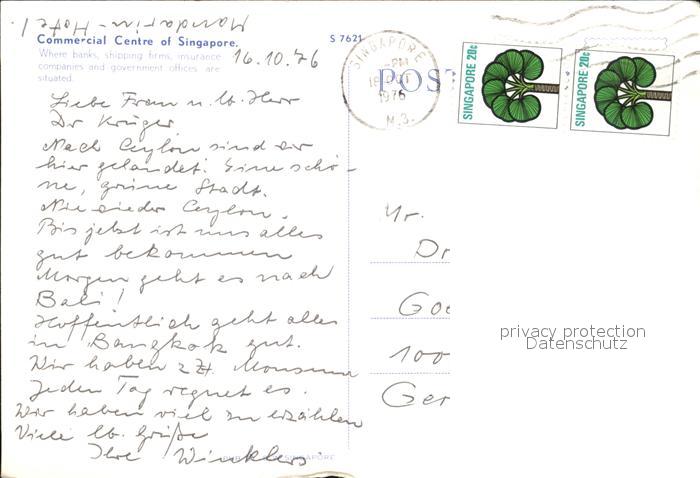 Mandarin-Hotel
Commercial Centre of Singapore.
S 7621
Where banks, shipping firms, insurance
companies and government offices are
situated.
16.10.76
SINGAPORE
PM
1976
M.3.
POST
SINGAPORE 20c
SINGAPORE 20c
Liebe Frau u. lb. Herr
Dr Krüger
Nach Ceylon sind wir
hier gelandet. Eine schö-
ne, grüne Stadt.
Nie wieder Ceylon.
Bis jetzt ist uns alles
gut bekommen
Morgen geht es nach
Bali!
Hoffentlich geht alles
in Bangkok gut.
Wir haben z Zt. Monsun
Jeden Tag regnet es.
Wir haben viel zu erzählen
Viele lb. Grüße
Ihre Winklers
SINGAPORE
Mr.
Dr
100
Ger
privacy protection
Datenschutz